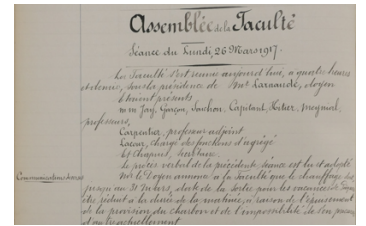 Assemblée de la Faculté
Séance du Lundi, 26 Mars 1917.
La Faculté s'est réunie aujourd'hui, à quatre heures
et demie, sous la présidence de Mr Larnaude, doyen
Étaient présents
MM Jay, Garçon, Souchon, Capitant, Meynial,
professeurs,
Carpentier, professeur adjoint,
Lacour, chargé des fonctions d'agrégé
Et Chapert, secrétaire.
Le procès verbal de la précédente séance est lu et adopté
Communications diverses
Mr le Doyen annonce à la Faculté que le chauffage
jusqu'au 31 Mars, date de la sortie pour les vacances de
être réduit à la durée de la matinée, à raison de l'épuisement
de la provision du charbon et de l'impossibilité de s'en
actuellement